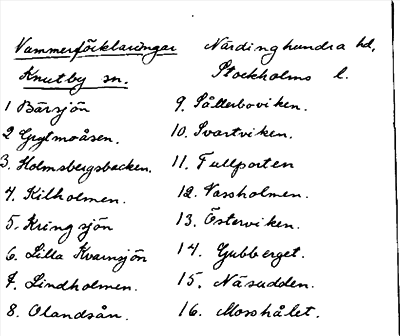 Nummerförklaringar
Knutby sn.
Närdinghundra hd,
Stockholms l.
1 Bärsjön
2 Gyglmoåsen.
3. Holmsbergsbacken.
4. Kilholmen.
5. Kringsjön
6. Lilla Kvarnsjön
7. Lindholmen.
8. Olandsån.
9. Sätterboviken.
10. Svartviken.
11. Tullporten
12. Vassholmen.
13. Österviken.
14. Gubberget.
15. Näsudden.
16. Mosshålet.